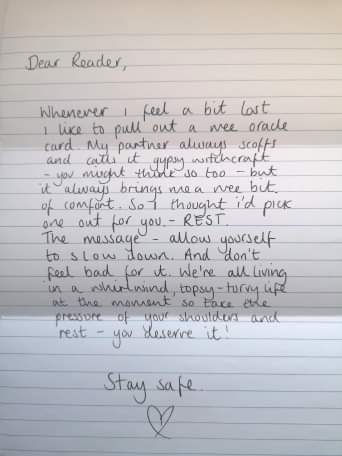 Dear Reader,
Whenever I feel a bit lost
I like to pull out a wee oracle
card. My partner always scoffs
and calls it gypsy witchcraft
- you might think so too - but
it always brings me a wee bit
of comfort. So I thought i'd pick
one out for you. - REST.
The message - allow yourself
to slow down. And don't
feel bad for it. We're all living
in a whirlwind, topsy-turvy life
at the moment so take the
pressure of your shoulders and
rest - you deserve it!
Stay safe.